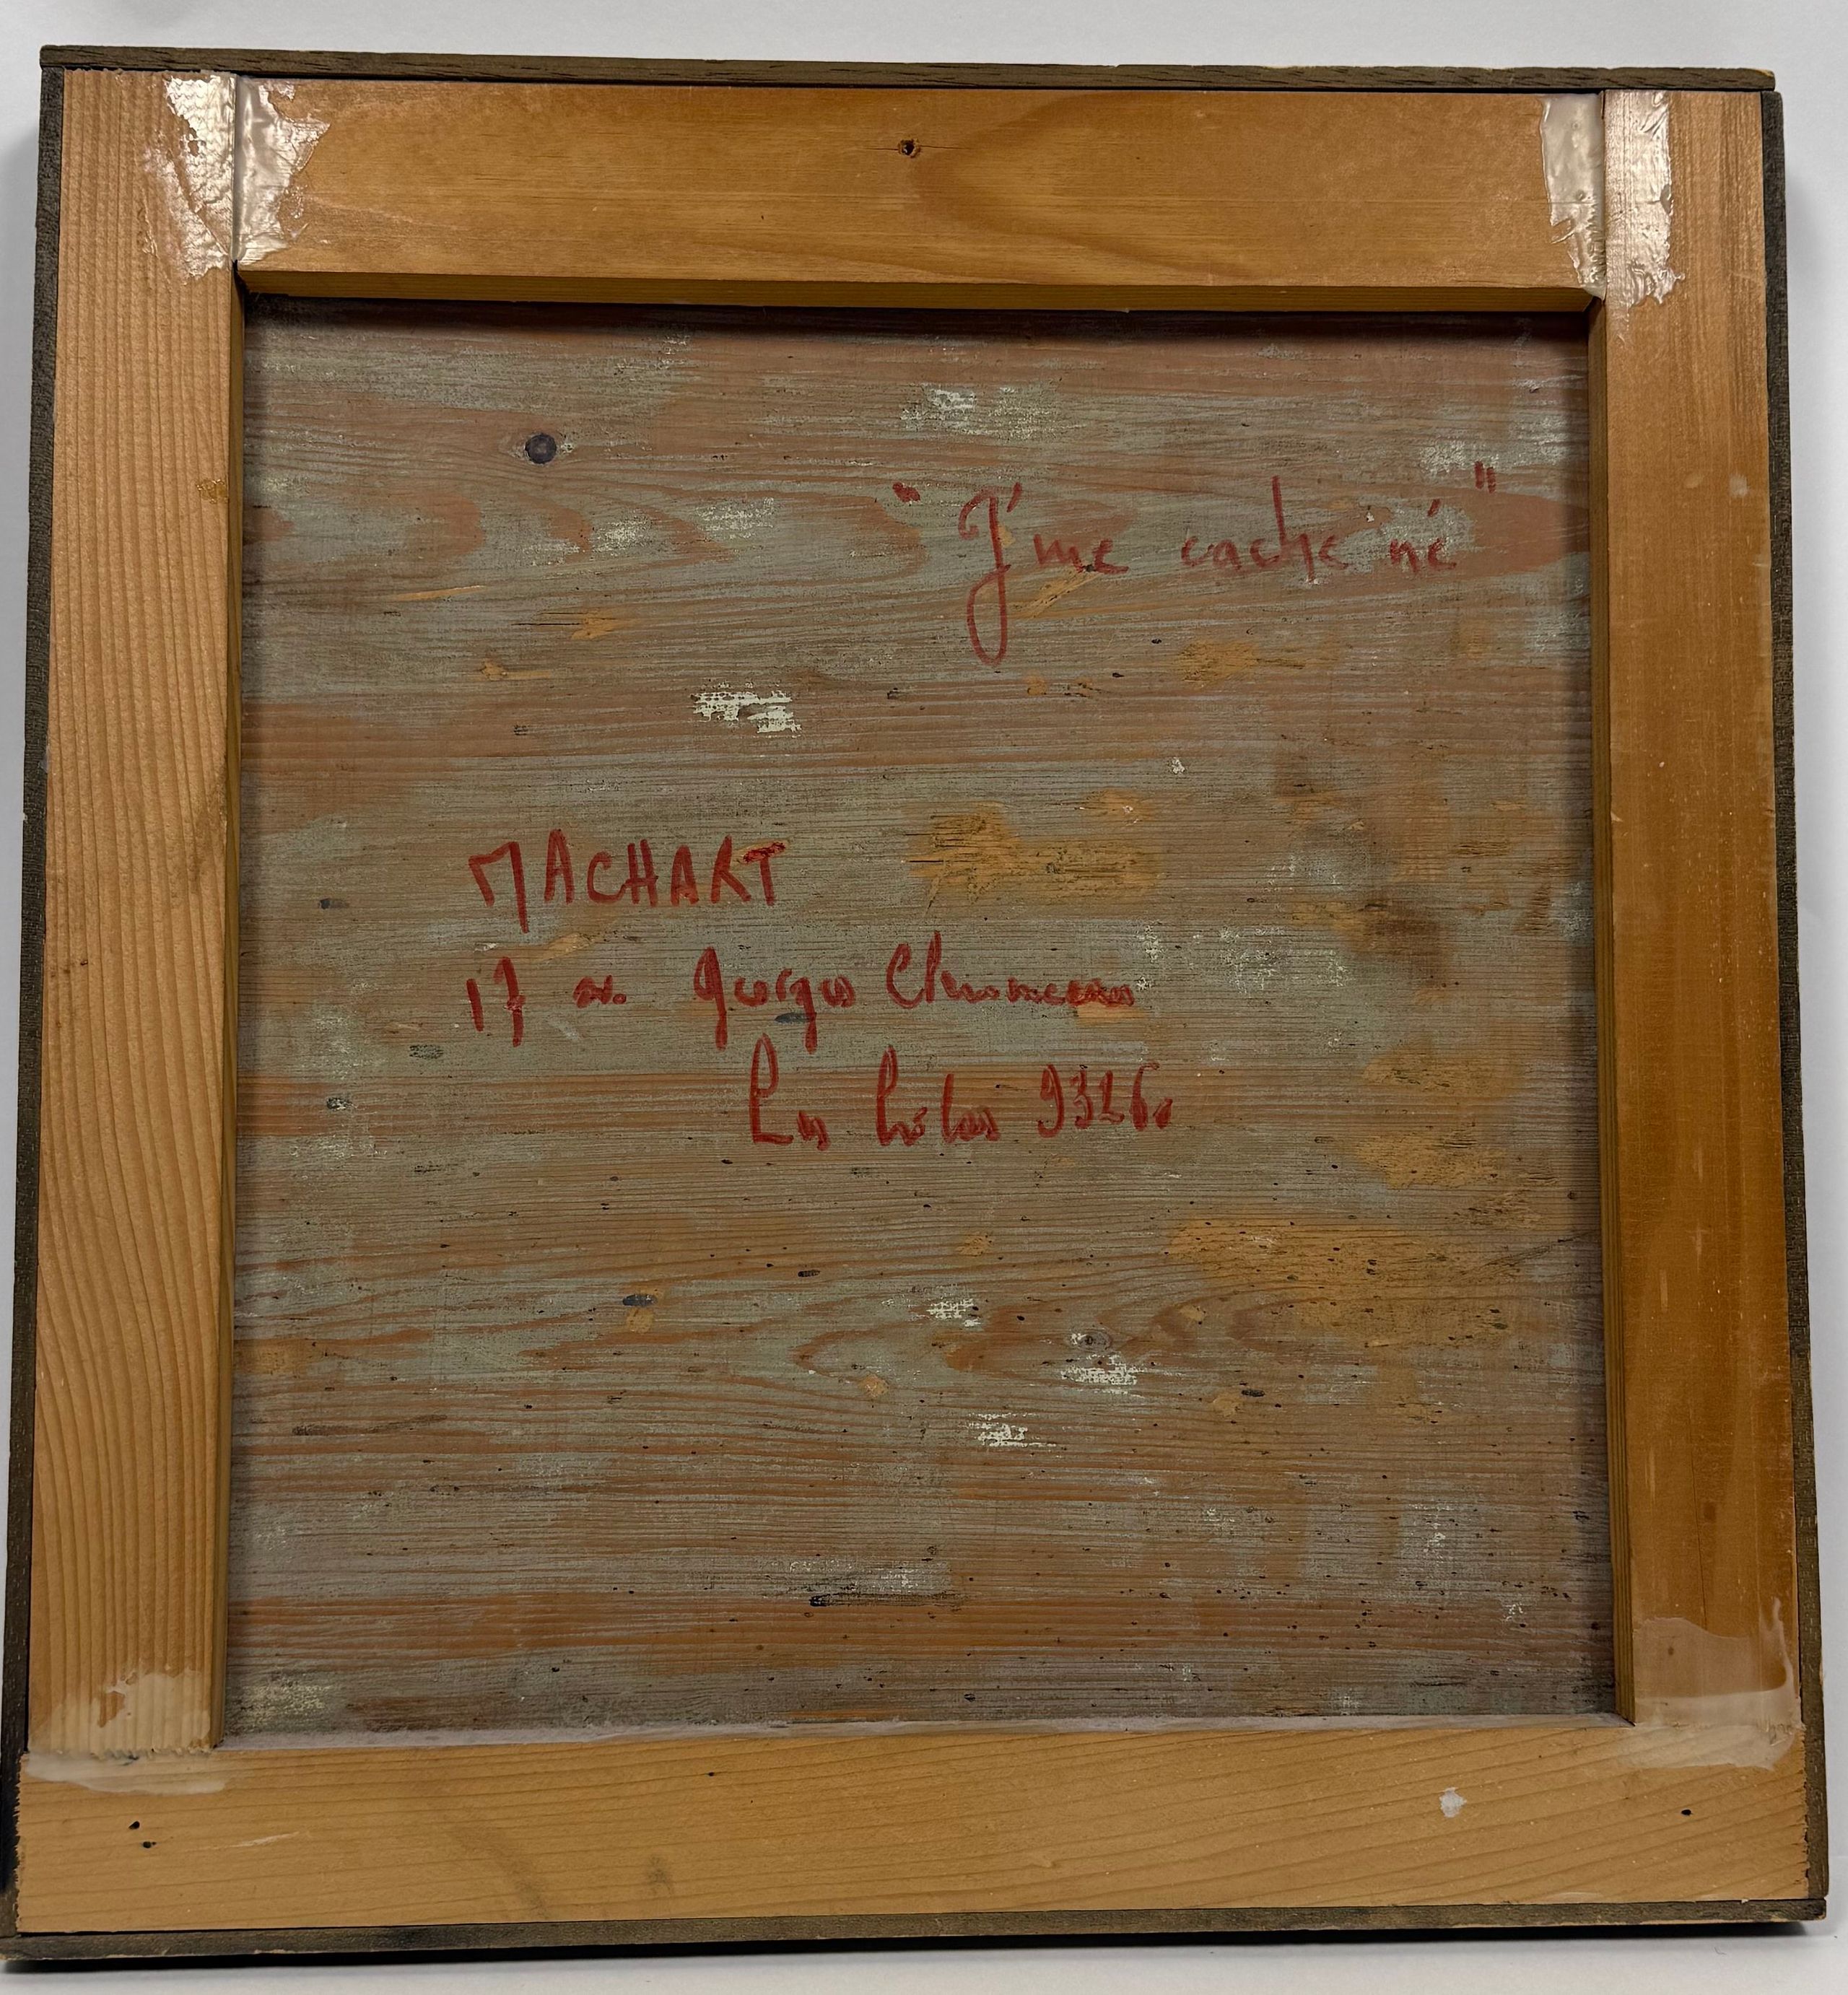 "J'me cache né"
MACHART
17 av. Georges Clemenceau
Les Lilas 93260